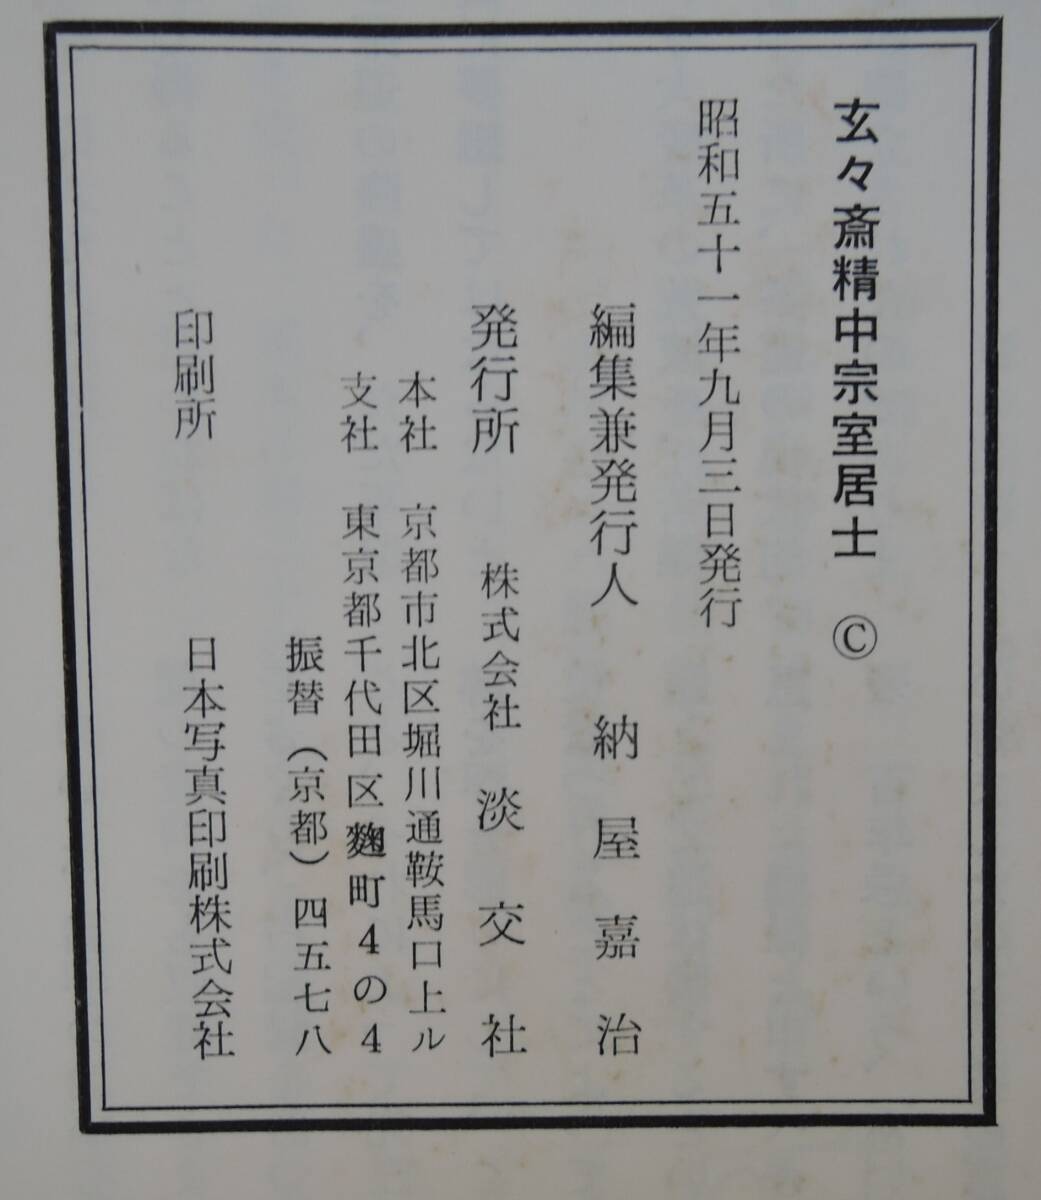 玄々斎精中宗室居士 ©
昭和五十一年九月三日発行
編集兼発行人 納屋嘉治
発行所 株式会社 淡交社
本社 京都市北区堀川通鞍馬口上ル
支社 東京都千代田区麴町4の4
振替（京都）四五七八
印刷所 日本写真印刷株式会社